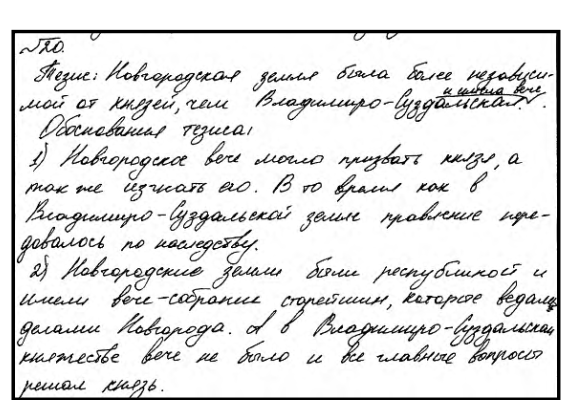 √20.
Тезис: Новгородская земля была более независи-
мой от князей, чем Владимиро-Суздальская.
и имела вече
Обоснования тезиса:
1) Новгородское вече могло призвать князя, а
так же изгнать его. В то время как в
Владимиро-Суздальской земле правление пере-
давалось по наследству.
2) Новгородские земли были республикой и
имели вече-собрание старейшин, которые ведали
делами Новгорода. А в Владимиро-Суздальском
княжестве вече не было и все главные вопросы
решал князь.